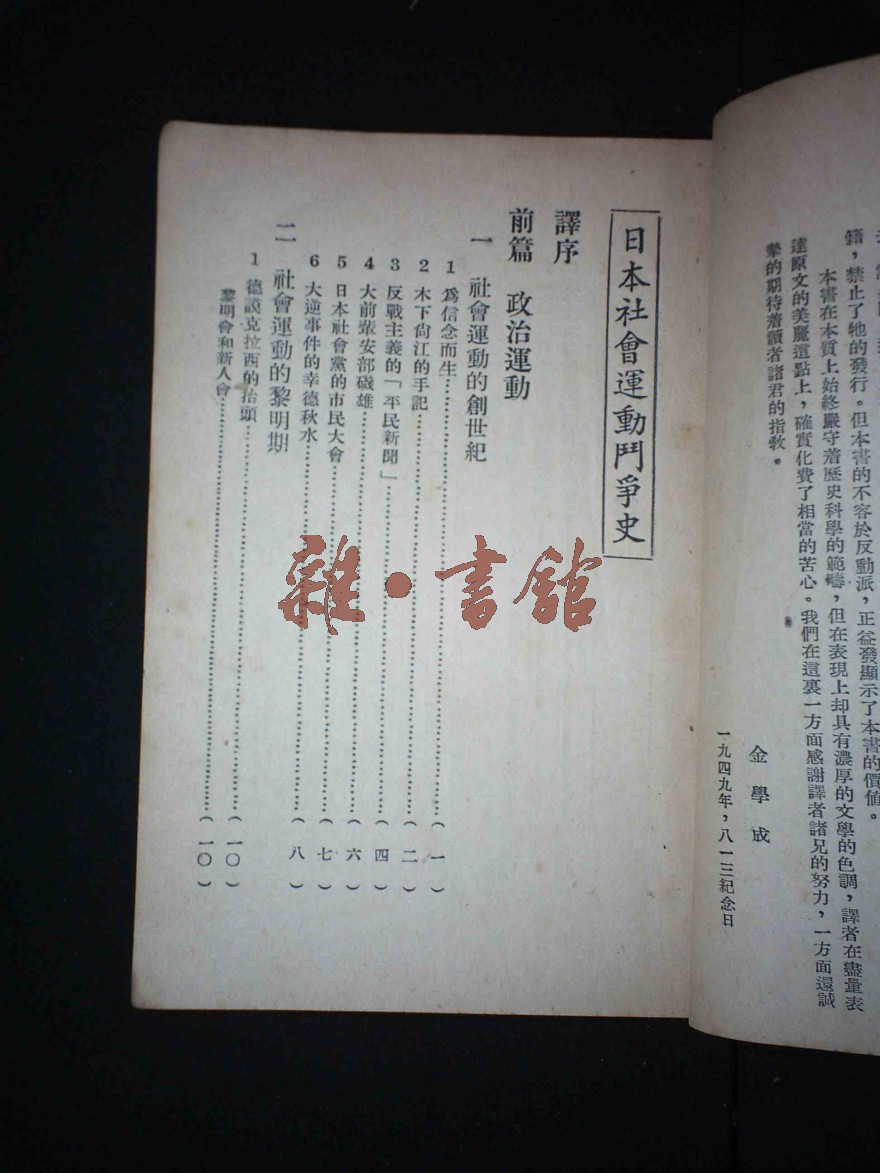 籍，禁止了牠的發行。但本書的不容於反動派，正益發顯示了本書的價值。
本書在本質上始終嚴守着歷史科學的範疇，但在表現上却具有濃厚的文學的色調，譯者在盡量表
達原文的美麗這點上，確實化費了相當的苦心。我們在這裏一方面感謝譯者諸兄的努力，一方面還誠
摯的期待着讀者諸君的指敎。
金學成
一九四九年，八一三紀念日
日本社會運動鬥爭史
譯序
前篇 政治運動
一 社會運動的創世紀
1 爲信念而生……………（一）
2 木下尙江的手記……………（二）
3 反戰主義的「平民新聞」……………（四）
4 大前輩安部磯雄……………（六）
5 日本社會黨的市民大會……………（七）
6 大逆事件的幸德秋水……………（八）
二 社會運動的黎明期
1 德謨克拉西的抬頭……………（一〇）
黎明會和新人會……………（一〇）
雜·書舘